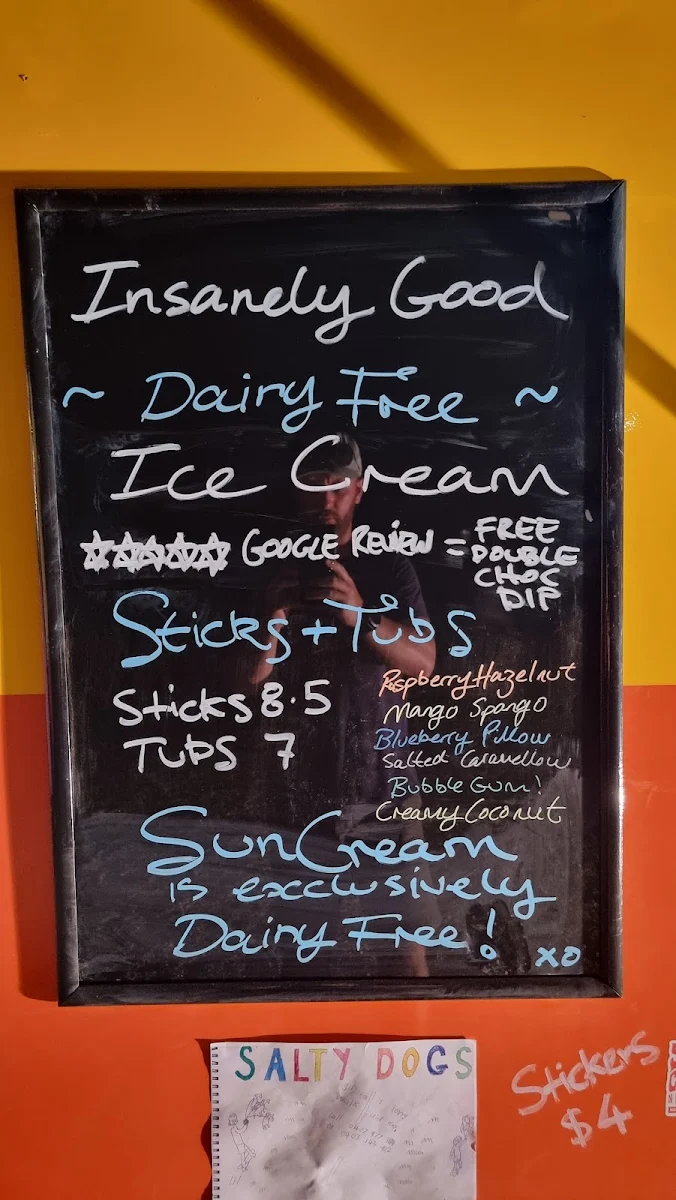 Insanely Good
~ Dairy Free ~
Ice Cream
GOOGLE REVIEW = FREE
DOUBLE
CHOC
DIP
Sticks + Tubs
Sticks 8.5
TUBS 7
Raspberry Hazelnut
Mango Spango
Blueberry Pillow
Salted Caramellow
Bubble Gum!
Creamy Coconut
SunCream
is exclusively
Dairy Free!
xo
SALTY DOGS
Stickers
$4